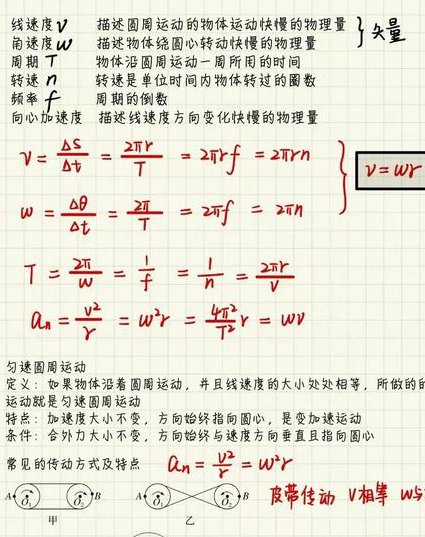 线速度v 描述圆周运动的物体运动快慢的物理量
角速度w 描述物体绕圆心转动快慢的物理量 } 矢量
周期 T 物体沿圆周运动一周所用的时间
转速 n 转速是单位时间内物体转过的圈数
频率 f 周期的倒数
向心加速度 描述线速度方向变化快慢的物理量
v = Δs/Δt = 2πr/T = 2πrf = 2πrn
v = wr
w = Δθ/Δt = 2π/T = 2πf = 2πn
T = 2π/w = 1/f = 1/n = 2πr/v
an = v²/r = w²r = 4π²/T² r = wv
匀速圆周运动
定义: 如果物体沿着圆周运动, 并且线速度的大小处处相等, 所做的的
运动就是匀速圆周运动
特点: 加速度大小不变, 方向始终指向圆心, 是变加速运动
条件: 合外力大小不变, 方向始终与速度方向垂直且指向圆心
常见的传动方式及特点 an = v²/r = w²r
A O₁ O₂ B A O₁ O₂ B 皮带传动 V相等 w与
甲 乙